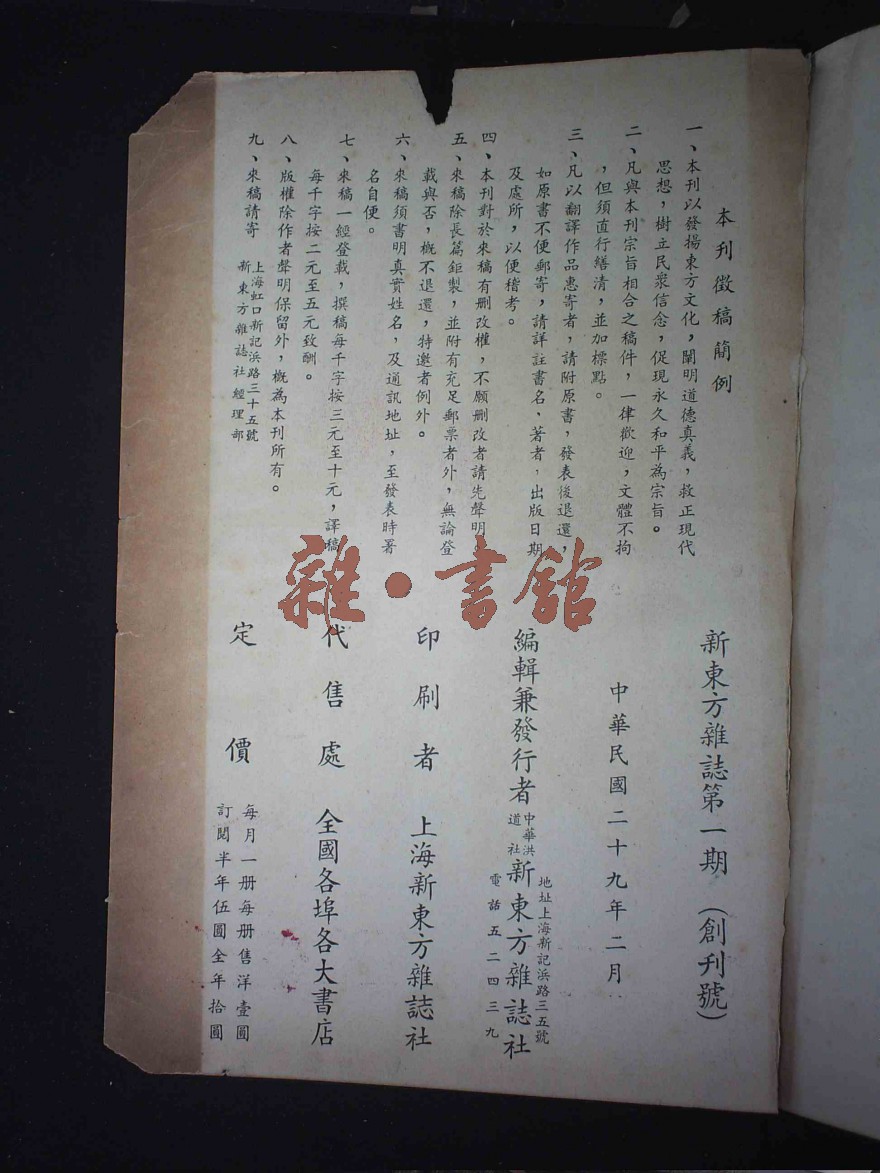 本刊徵稿簡例
一、本刊以發揚東方文化，闡明道德真義，救正現代
思想，樹立民衆信念，促現永久和平為宗旨。
二、凡與本刊宗旨相合之稿件，一律歡迎，文體不拘
，但須直行繕清，並加標點。
三、凡以翻譯作品惠寄者，請附原書，發表後退還，
如原書不便郵寄，請詳註書名、著者，出版日期
及處所，以便稽考。
四、本刊對於來稿有刪改權，不願刪改者請先聲明
五、來稿除長篇鉅製，並附有充足郵票者外，無論登
載與否，概不退還，特邀者例外。
六、來稿須書明真實姓名，及通訊地址，至發表時署
名自便。
七、來稿一經登載，撰稿每千字按三元至十元，譯稿
每千字按二元至五元致酬。
八、版權除作者聲明保留外，概為本刊所有。
九、來稿請寄
上海虹口新記浜路三十五號
新東方雜誌社經理部
新東方雜誌第一期（創刊號）
中華民國二十九年二月
編輯兼發行者
中華洪
道社
新東方雜誌社
地址上海新記浜路三五號
電話五二四三九
印刷者 上海新東方雜誌社
代售處 全國各埠各大書店
定價
每月一册每册售洋壹圓
訂閱半年伍圓全年拾圓
雜·書館